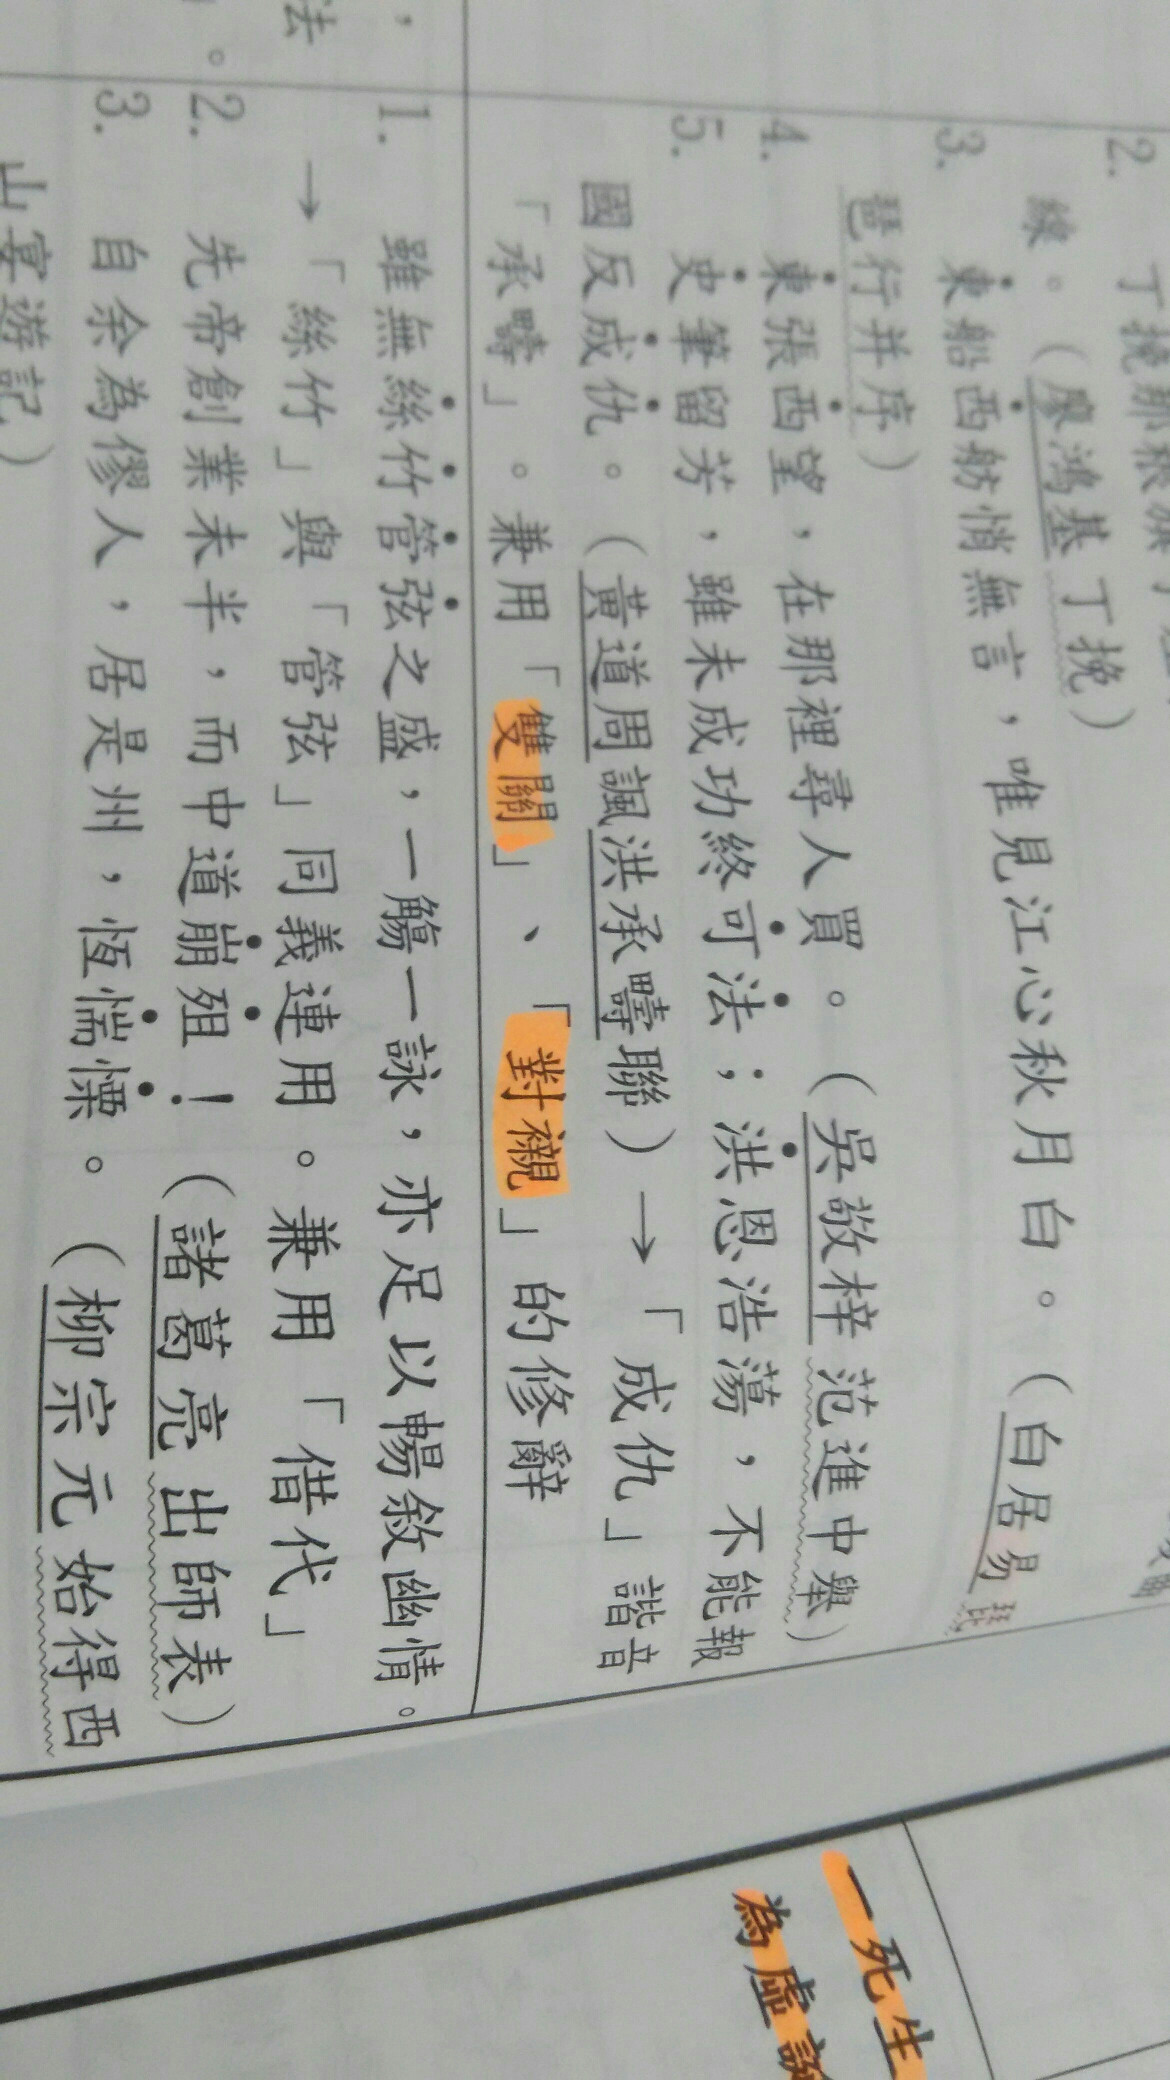 2. 丁挽那
線。（廖鴻基丁挽）
3. 東船西舫悄無言，唯見江心秋月白。（白居易琵
琶行并序）
4. 東張西望，在那裡尋人買。（吳敬梓范進中舉）
5. 史筆留芳，雖未成功終可法；洪恩浩蕩，不能報
國反成仇。（黃道周諷洪承疇聯）→「成仇」諧音
「承疇」。兼用「雙關」、「對襯」的修辭
，
1. 雖無絲竹管弦之盛，一觴一詠，亦足以暢敘幽情。
法
→「絲竹」與「管弦」同義連用。兼用「借代」
。
2. 先帝創業未半，而中道崩殂！（諸葛亮出師表）
3. 自余為僇人，居是州，恆惴慄。（柳宗元始得西
山宴遊記）
一死生
為虛誕